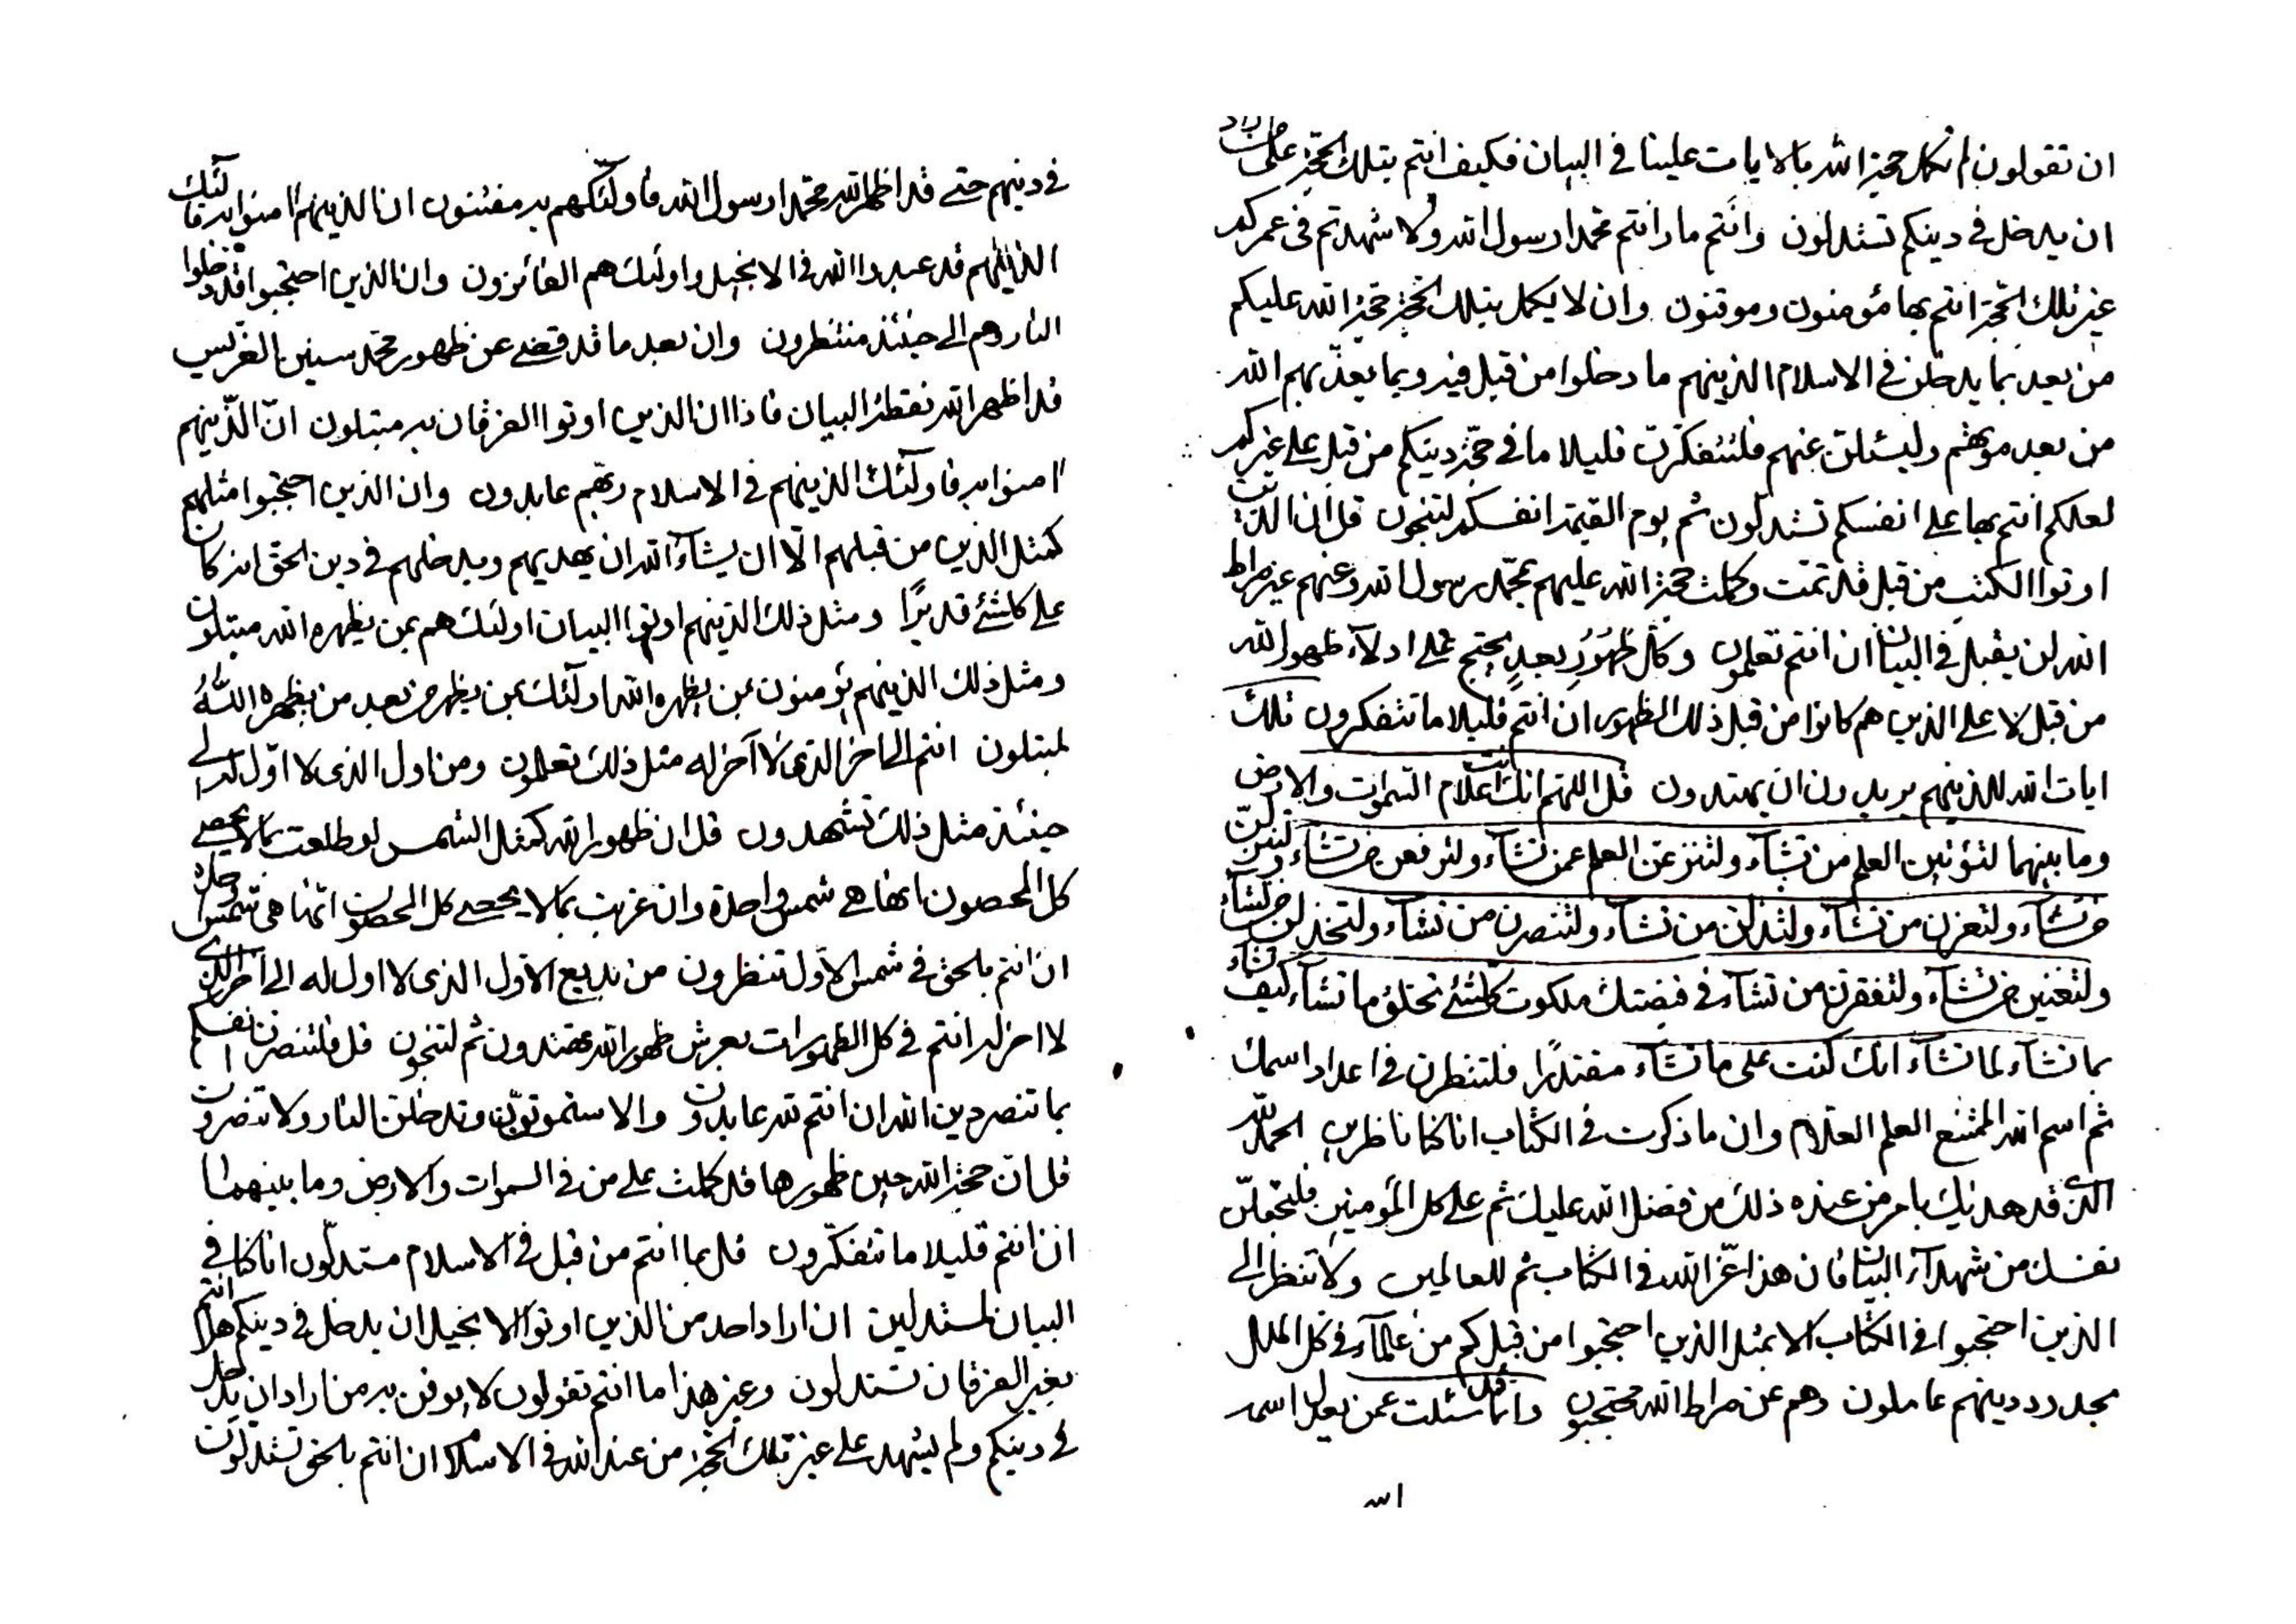 ان تقولون لم تكمل حجة الله بالايات علينا في البيان فكيف انتم بتلك الحجة على من اراد
ان يدخل في دينكم تستدلون وانتم ما رائتم محمدا رسول الله ولا شهدتم في عمركم
غير تلك الحجة انتم بها مؤمنون وموقنون وان لا يكمل بتلك الحجة حجة الله عليكم
من بعد بما يدخلن في الاسلام الذينهم ما دخلوا من قبل فيه وبما يعذبهم الله
من بعد موتهم وليسئلن عنهم فلتتفكرن قليلا ما في حجة دينكم من قبل على غيركم
لعلكم انتم بها على انفسكم تستدلون ثم يوم القيمة انفسكم لتنجون قل ان الذين
اوتوا الكتب من قبل قد تمت وكملت حجة الله عليهم بمحمد رسول الله وعنهم غير صراط
الله لن يقبل في البيان ان انتم تعلمون وكل ظهور بعد يحتج على ادلاء ظهور الله
من قبل لا على الذين هم كانوا من قبل ذلك الظهور ان انتم قليلا ما تتفكرون تلك
ايات الله للذينهم يريدون ان يهتدون قل اللهم انك انت علام السموات والارض
وما بينهما لتؤتين العلم من تشاء ولتنزعن العلم عمن تشاء ولترفعن من تشاء ولتنزلن
من تشاء ولتعزن من تشاء ولتذلن من تشاء ولتنصرن من تشاء ولتخذلن من تشاء
ولتغنين من تشاء ولتفقرن من تشاء في قبضتك ملكوت كلشئ تخلق ما تشاء كيف تشاء
بما تشاء لما تشاء انك كنت على ما تشاء مقتدرا فلتنظرن في اعداد اسمك
ثم اسم الله الممتنع العلم العلام وان ما ذكرت في الكتاب انا كنا ناظرين الحمد لله
الذي قد هديك بامر من عنده ذلك من فضل الله عليك ثم على كل المؤمنين فلتجعلن
نفسك من شهداء البيان فان هذا عز الله في الكتاب ثم للعالمين ولا تنظر الى
الذين احتجبوا في الكتاب الا بمثل الذين احتجبوا من قبلكم من علماء في كل الملل
بحدود دينهم عاملون وهم عن صراط الله محتجبون وانما قد سئلت عمن يعدل اسمه
في دينهم حتى قد اظهر الله محمدا رسول الله فاولئكهم به مفتنون ان الذينهم امنوا به فاولئك
الذينهم قد عبدوا الله في الانجيل واولئك هم الفائزون وان الذين احتجبوا قد دخلوا
النار وهم الى حينئذ منتظرون وان بعد ما قد قضى عن ظهور محمد سنين الغرس
قد اظهر الله نقطة البيان فاذا ان الذين اوتوا الفرقان به مبتلون ان الذينهم
امنوا به فاولئك الذينهم في الاسلام ربهم عابدون وان الذين احتجبوا مثلهم
كمثل الذين من قبلهم الا ان يشاء الله ان يهديهم ويدخلهم في دين الحق انه كان
على كلشئ قديرا ومثل ذلك الذينهم اوتوا البيان اولئك هم بمن يظهره الله مبتلون
ومثل ذلك الذينهم يؤمنون بمن يظهره الله اولئك بمن يظهر من بعد من يظهره الله
لمبتلون انتم الى اخر الذي لا آخر له مثل ذلك تعلمون ومن اول الذي لا اول له الى
حينئذ مثل ذلك تشهدون قل ان ظهور الله كمثل الشمس لو طلعت بما لا يحصى
كل المحصون انها هي شمس واحدة وان غربت بما لا يحصى كل المحصون انها هي شمس واحدة
ان انتم بالحق في شمس الاول تنظرون من بديع الاول الذي لا اول له الى آخر الذي
لا اخر له انتم في كل الظهورات بعرش ظهور الله مهتدون ثم لتنجون قل فلتنصرن انفسكم
بما تنصر دين الله ان انتم لله عابدون والا ستموتون وتدخلن النار ولا تنصرون
قل ان حجة الله حين ظهورها قد كملت على من في السموات والارض وما بينهما
ان انتم قليلا ما تتفكرون قل بما انتم من قبل في الاسلام مستدلون انا كنا في
البيان لمستدلين ان اراد احد من الذين اوتوا الانجيل ان يدخل في دينكم هل انتم
بغير الفرقان تستدلون وغير هذا ما انتم تقولون لا يوقن به من اراد ان يدخل
في دينكم ولم يشهد على غير تلك الحجة من عند الله في الاسلام ان انتم بالحق تستدلون